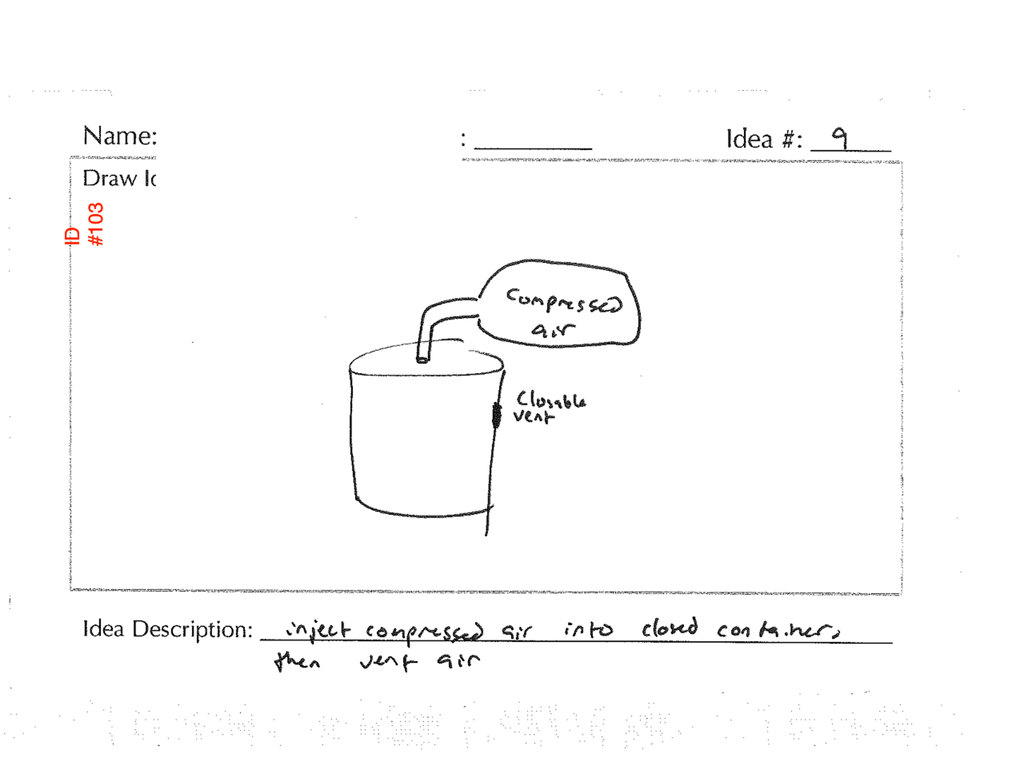 Name:
: Idea #: 9
Draw Id
ID
#103
compressed
air
Closable
vent
Idea Description: inject compressed air into closed container,
then vent air